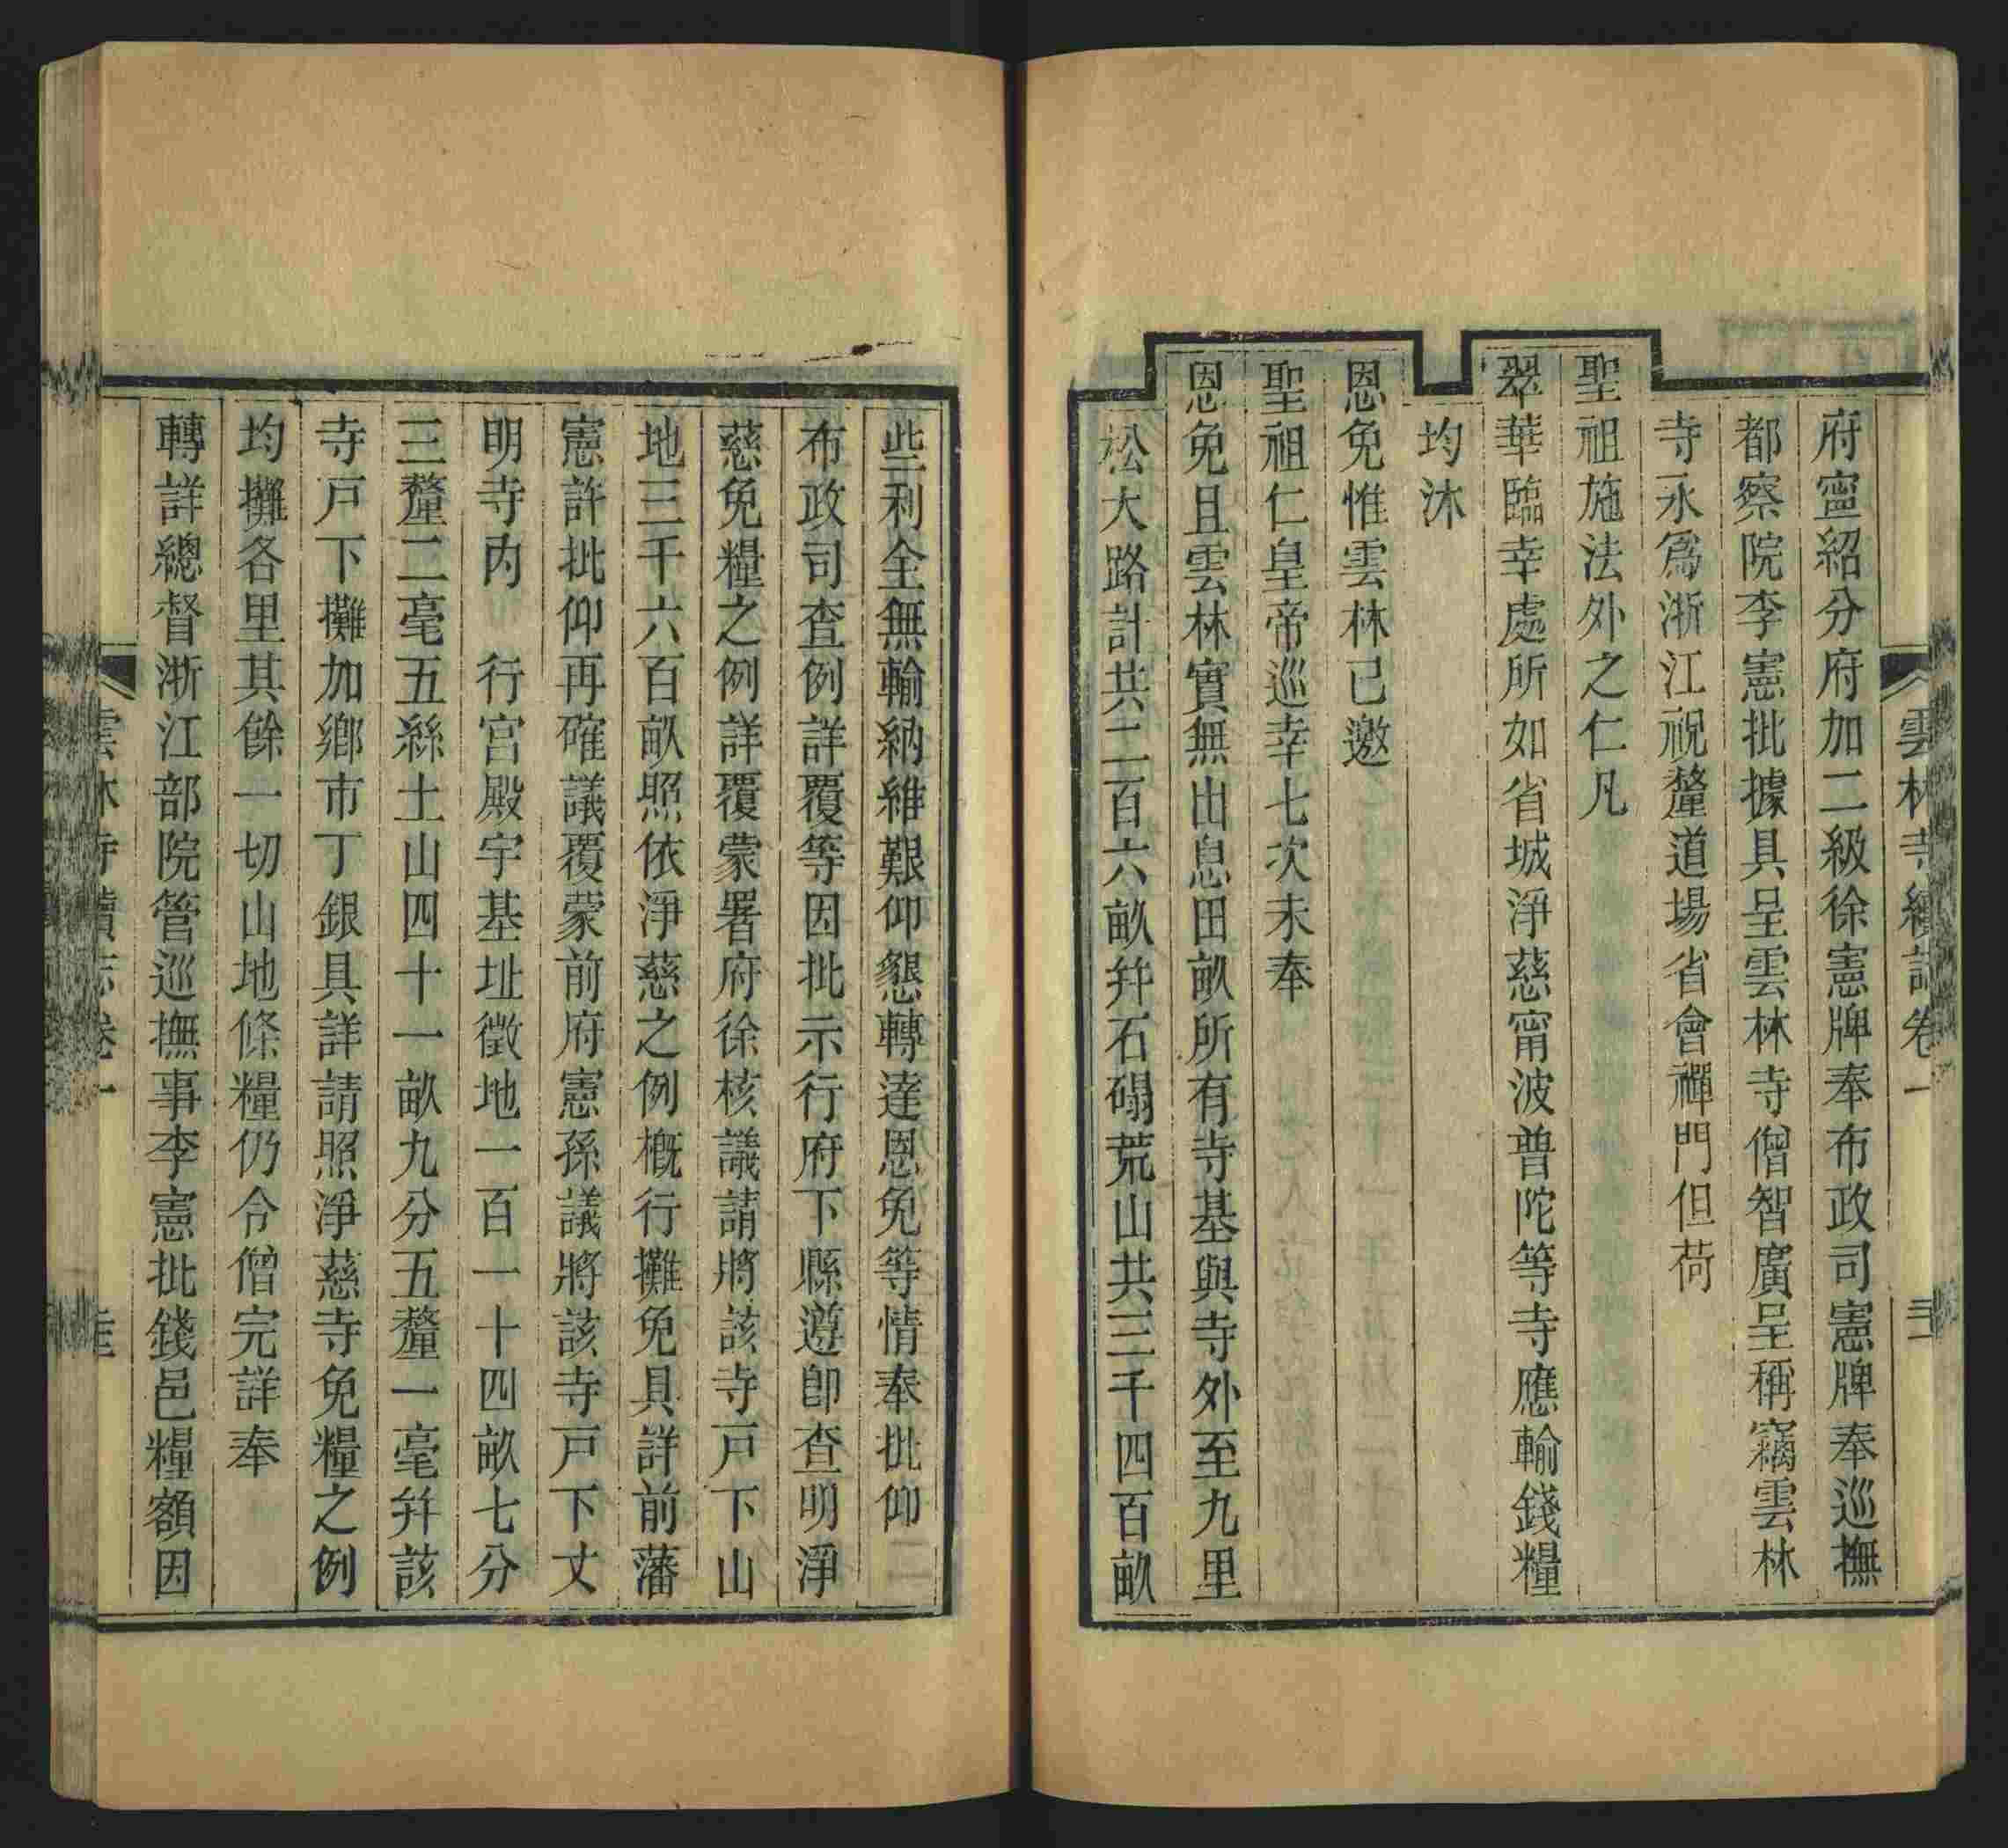 府寧紹分府加二級徐憲牌奉布政司憲牌奉巡撫
都察院李憲批據具呈雲林寺僧智廣呈稱竊雲林
寺永爲浙江祝釐道場省會禪門但荷
聖祖施法外之仁凡
翠華臨幸處所如省城淨慈甯波普陀等寺應輸錢糧
均沐
恩免惟雲林已邀
聖祖仁皇帝巡幸七次未奉
恩免且雲林實無出息田畝所有寺基與寺外至九里
松大路計共二百六畝幷石磖荒山共三千四百畝
些利全無輸納維艱仰懇轉達恩免等情奉批仰
布政司查例詳覆等因批示行府下縣遵卽查明淨
慈免糧之例詳覆蒙署府徐核議請將該寺戸下山
地三千六百畝照依淨慈之例槪行攤免具詳前藩
憲許批仰再確議覆蒙前府憲孫議將該寺戸下丈
明寺內　行宮殿宇基址徵地一百一十四畝七分
三釐二毫五絲土山四十一畝九分五釐一毫幷該
寺戸下攤加鄉市丁銀具詳請照淨慈寺免糧之例
均攤各里其餘一切山地條糧仍令僧完詳奉
轉詳總督浙江部院管巡撫事李憲批錢邑糧額因
雲林寺續志卷一